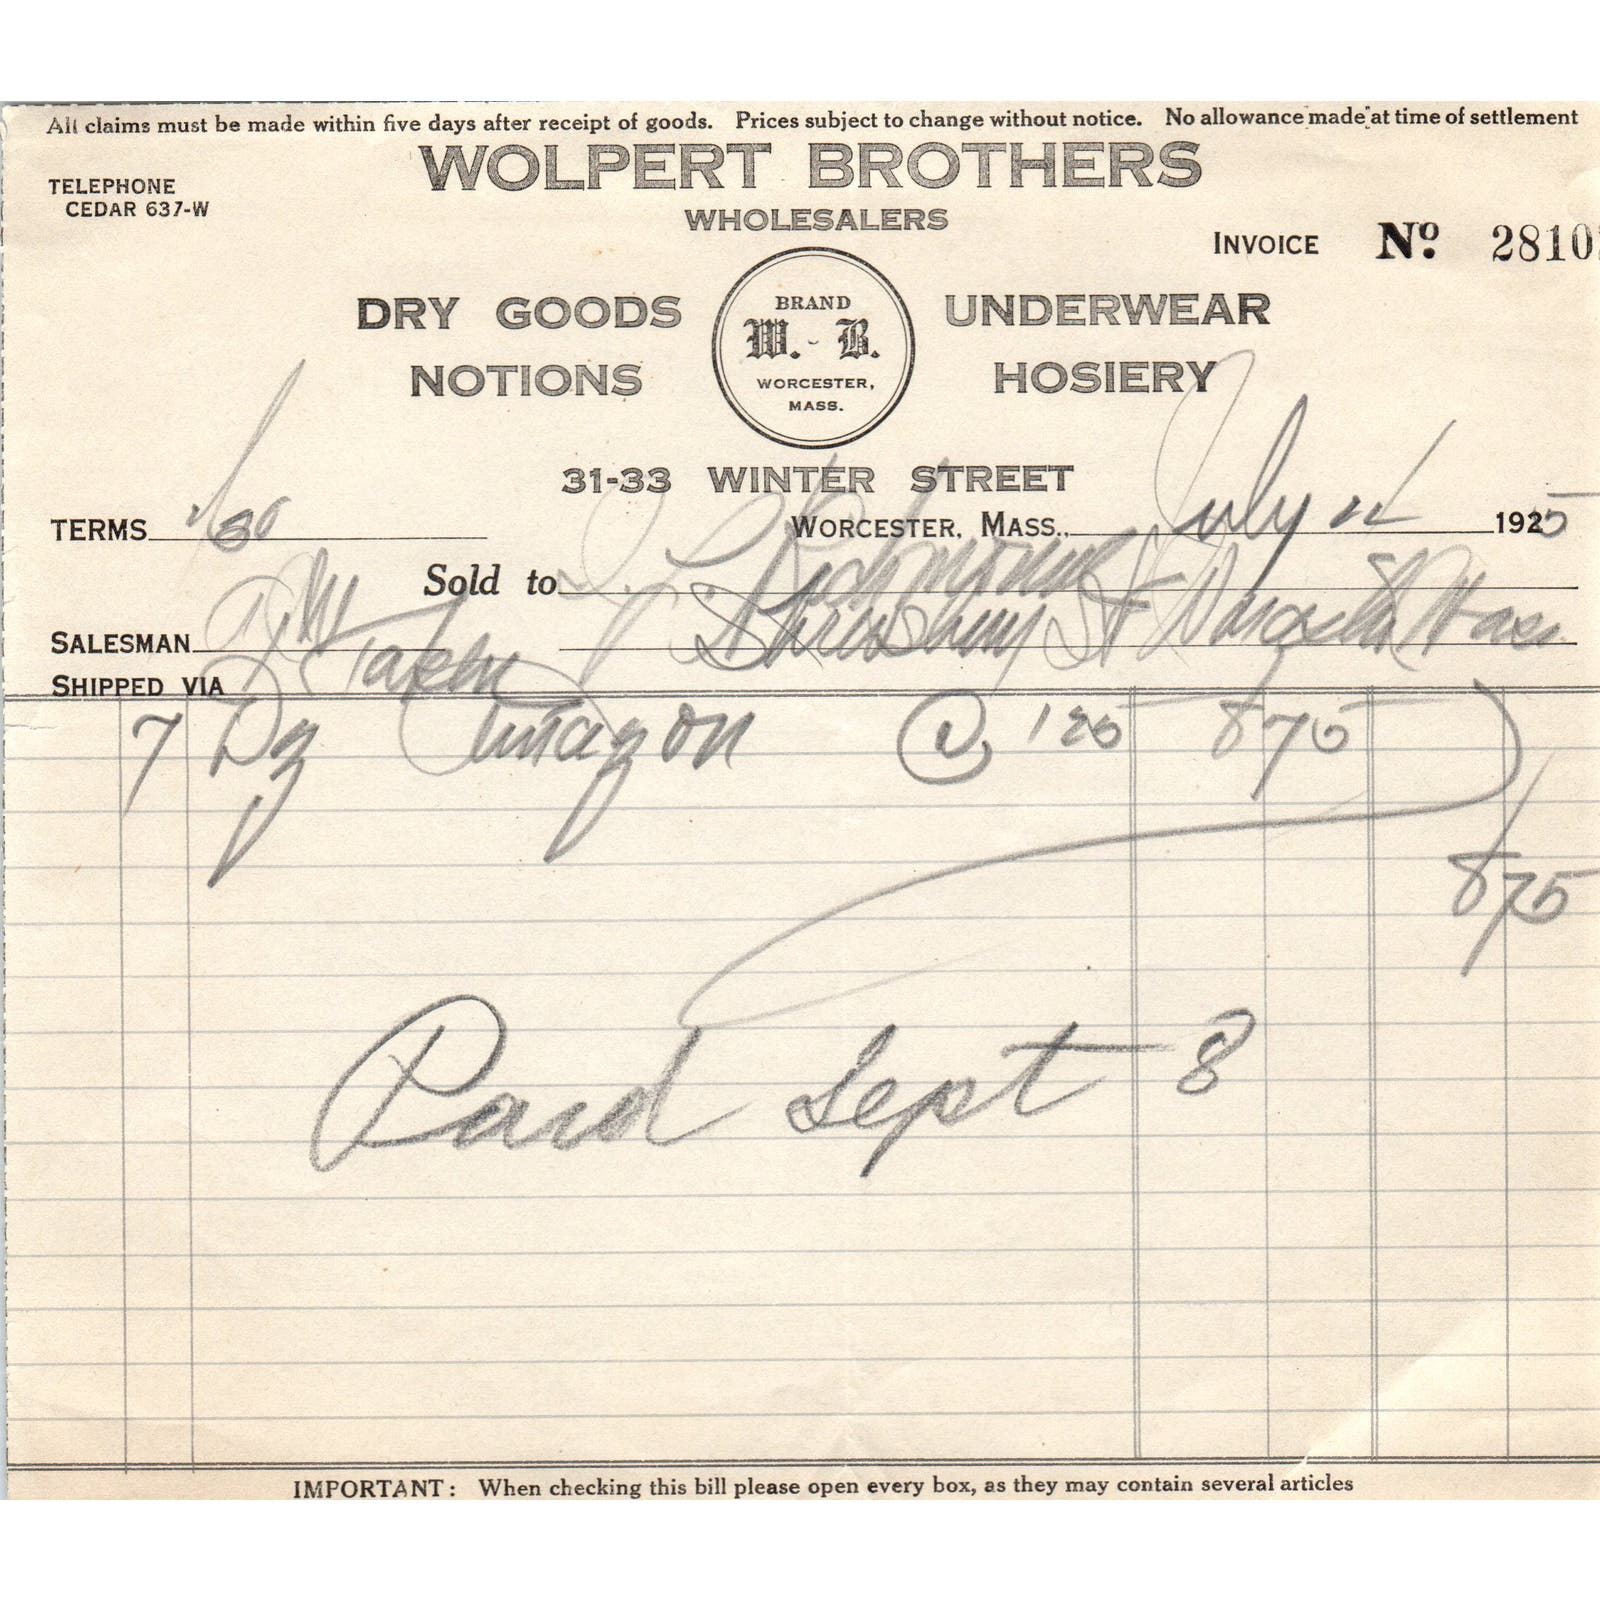 All claims must be made within five days after receipt of goods. Prices subject to change without notice. No allowance made at time of settlement
WOLPERT BROTHERS
TELEPHONE
CEDAR 637-W
WHOLESALERS
INVOICE No. 2810
DRY GOODS
NOTIONS
BRAND
W. - B.
WORCESTER,
MASS.
UNDERWEAR
HOSIERY
31-33 WINTER STREET
TERMS
WORCESTER, MASS., July 1925
Sold to
SALESMAN Shrewsbury St Mass
SHIPPED VIA Taken
7 Dz Amazon @ 125 875
875
Paid Sept 8
IMPORTANT: When checking this bill please open every box, as they may contain several articles